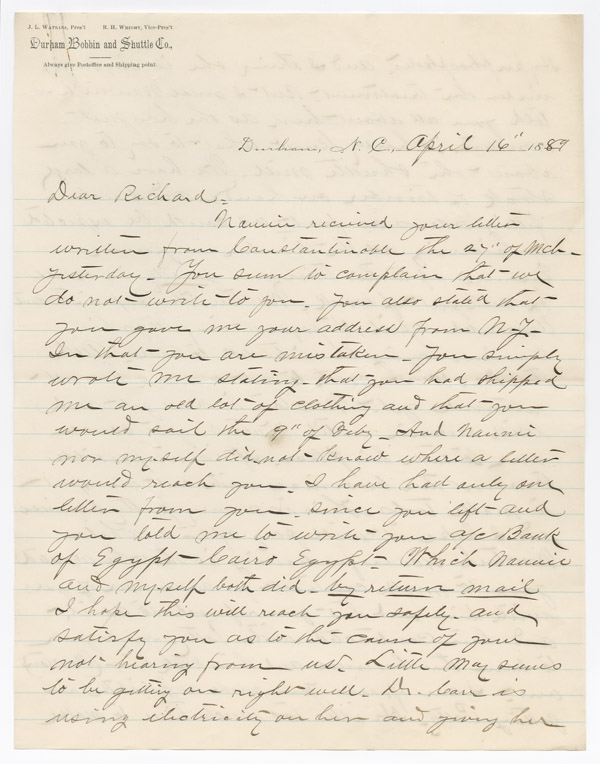 J. L. Watkins, Pres't    R. H. Wright, Vice-Pres't
Durham Bobbin and Shuttle Co.,
Always give Postoffice and Shipping point.
Durham, N. C., April 16" 1889
Dear Richard=
Nannie recived your letter
written from Constantinople the 27" of Mch-
yesterday- You seem to complain that we
do not write to you. You also stated that
you gave me your address from N-Y-
In that you are mistaken- You simply
wrote me stating that you had shipped
me an old lot of clothing and that you
would sail the 9" of Feby- And Nannie
nor myself did not know where a letter
would reach you. I have had only one
letter from you since you left and
you told me to write you a/c Bank
of Egypt- Cairo Egypt- Which Nannie
and myself both did- by return mail
I hope this will reach you safely- and
satisfy you as to the cause of your
not hearing from us. Little May seems
to be getting on right well. Dr. Carr is
using electricity on her and giving her